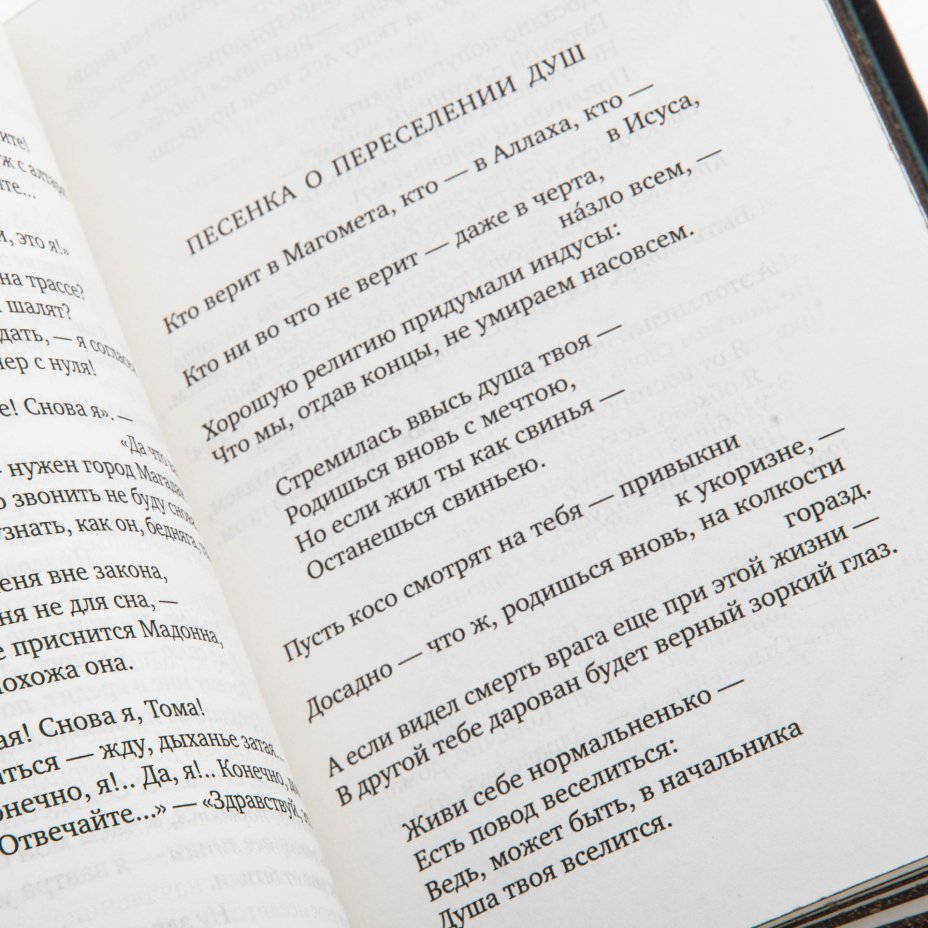 ите!
ж с алтаря
те...
й, это я!»
на трассе?
шалят?
дать, — я согласен
ер с нуля!
е! Снова я». —
«Да что в
нужен город Магадан
о звонить не буду снова
узнать, как он, бедняга, т
еня вне закона,
ня не для сна, —
е приснится Мадонна,
похожа она.
ая! Снова я, Тома!
ться — жду, дыханье затая...
онечно, я!.. Да, я!.. Конечно,
Отвечайте...» — «Здравствуй,
ПЕСЕНКА О ПЕРЕСЕЛЕНИИ ДУШ
Кто верит в Магомета, кто — в Аллаха, кто —
в Исуса,
Кто ни во что не верит — даже в черта,
на́зло всем, —
Хорошую религию придумали индусы:
Что мы, отдав концы, не умираем насовсем.
Стремилась ввысь душа твоя —
Родишься вновь с мечтою,
Но если жил ты как свинья —
Останешься свиньею.
Пусть косо смотрят на тебя — привыкни
к укоризне, —
Досадно — что ж, родишься вновь, на колкости
горазд.
А если видел смерть врага еще при этой жизни —
В другой тебе дарован будет верный зоркий глаз.
Живи себе нормальненько —
Есть повод веселиться:
Ведь, может быть, в начальника
Душа твоя вселится.